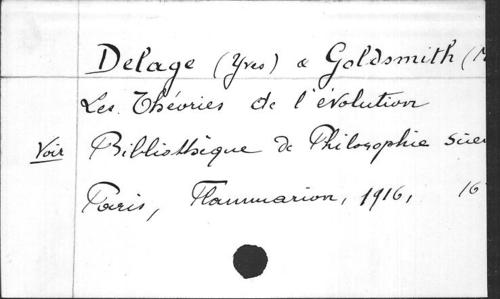 Delage (Yves) & Goldsmith (M
Les Théories de l'évolution
Voir Bibliothèque de Philosophie scien
Paris, Flammarion, 1916, 16